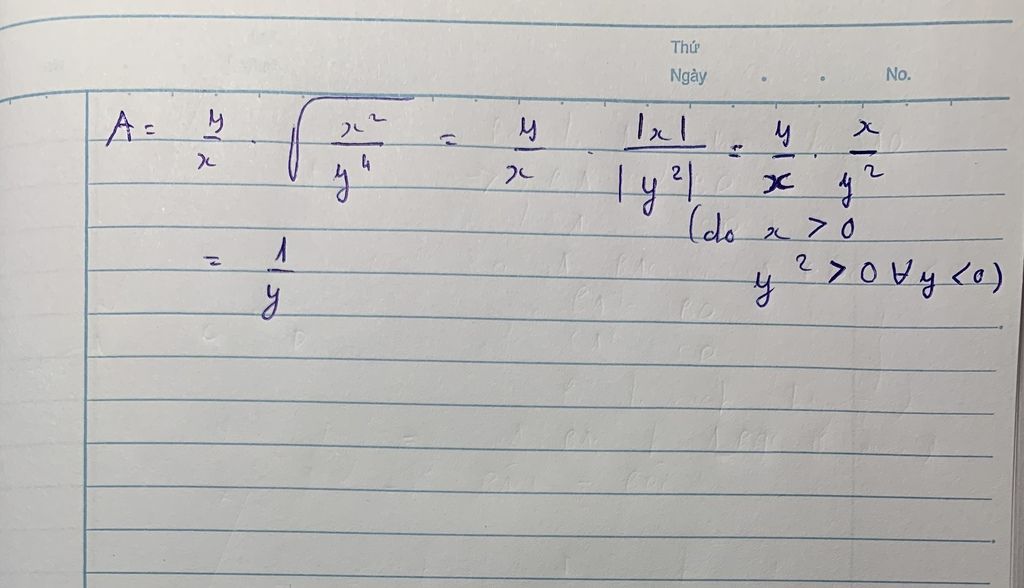 Thứ
Ngày . . No.
A = y/x . √(x²/y⁴) = y/x . |x|/|y²| = y/x . x/y²
(do x > 0
= 1/y
y² > 0 ∀ y < 0)